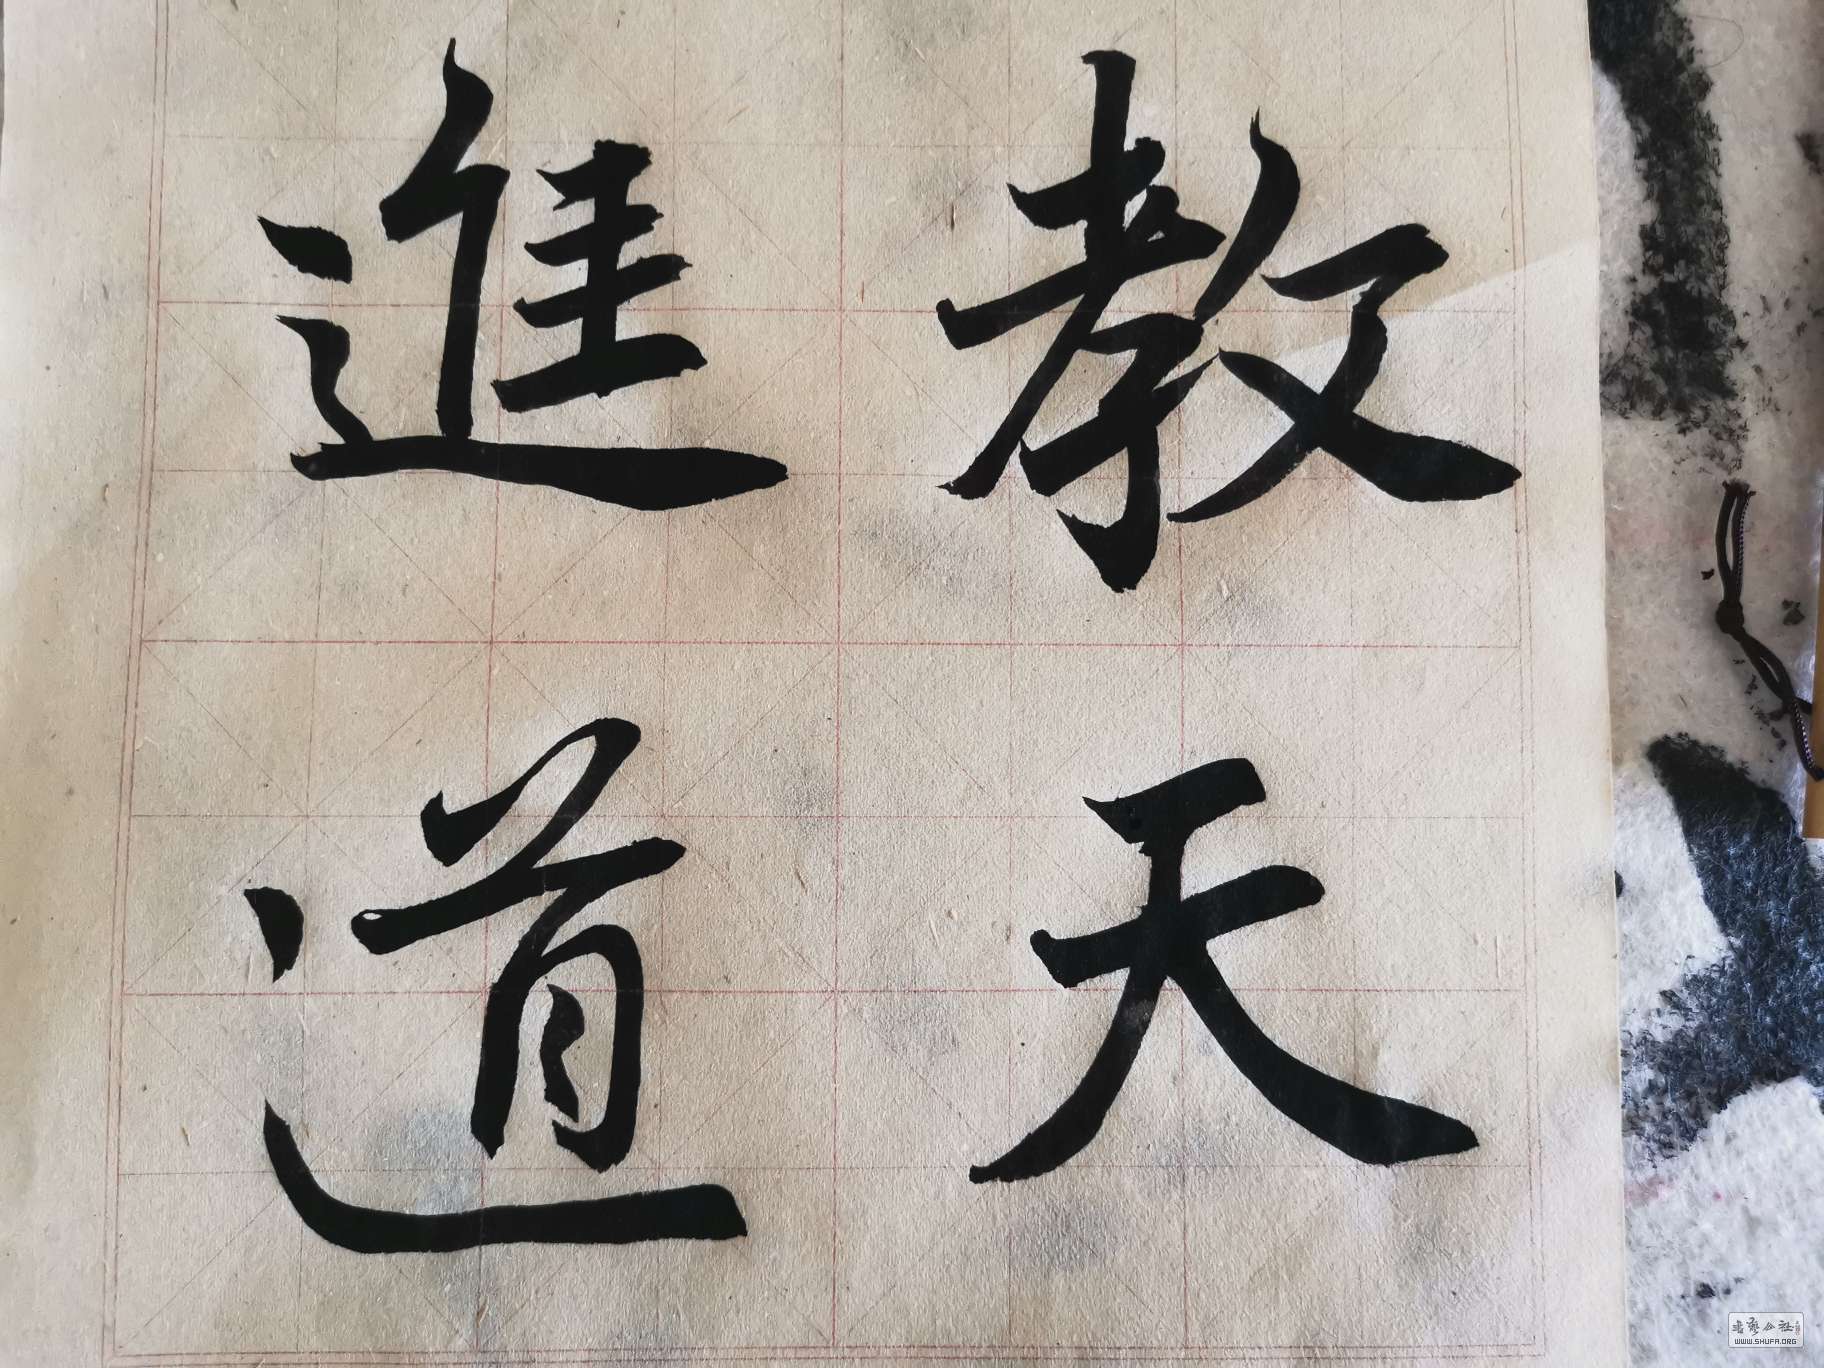 教天
進道
書藝公社
WWW.SHUFA.ORG